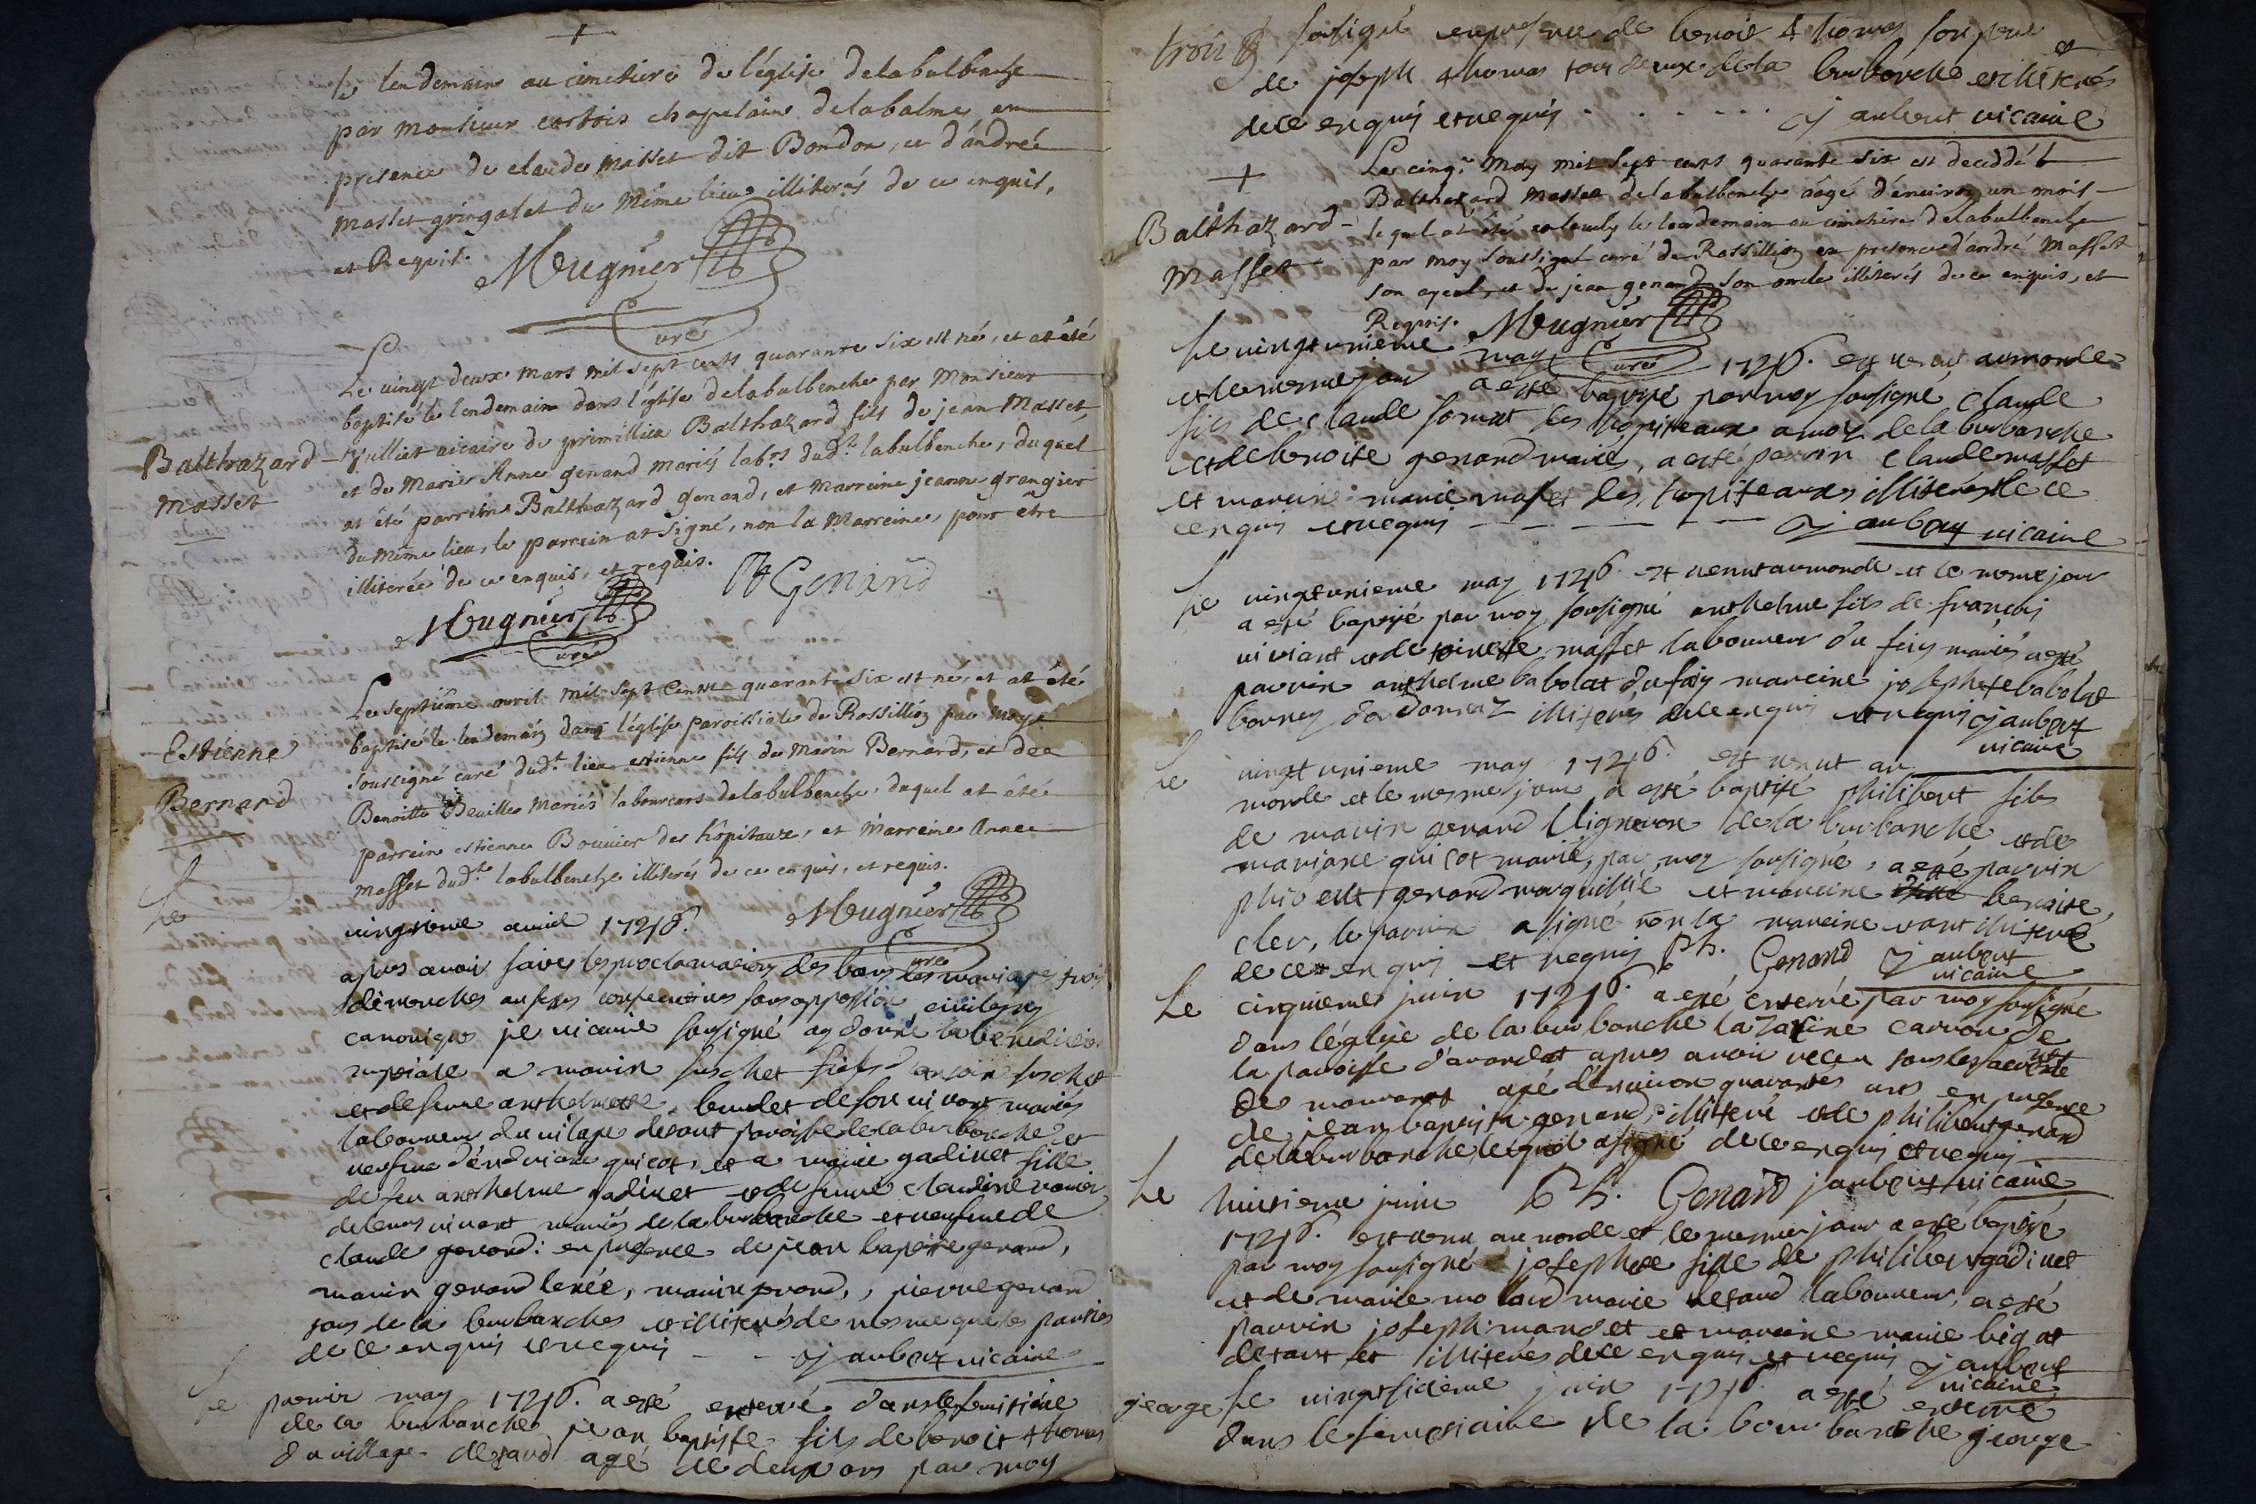 le lendemain au cimetiere de l'église delabulbenche
par Monsieur chapelain delabalme en
presence de claude Masset dit Bondon, et d'andré
Masset gringalet du même lieu illiterés de ce enquis,
et Requis. Meugnier
curé
Le vingt deux Mars mil sept cents quarante six est né, et at été
baptisé le lendemain dans l'église delabulbenche par Monsieur
Balthazard Masset
Julliet vicaire de primillieu Balthazard fils de jean Masset,
et de Marie Anne genand Mariés lab.rs dud.t labulbenche, duquel
at été parrein Balthazard genand, et Marreine jeanne grangier
du même lieu, le parrein at signé, non la Marreine, pour être
illiterée de ce enquis, et requis. Genand
Meugnier
curé
Estienne Bernard
Le septiême avril mil sept Cents quarante six est né, et at été
baptisé le lendemain dans l'église paroissiale de Rossillion par Moy
soussigné curé dud.t lieu estienne fils de Marin Bernard, et de
Benoitte Mariés laboureurs delabulbenche, duquel at été
parrein estienne Bouvier des hôpitaux, et Marreine Anne
Masset dud.t labulbenche illiterés de ce enquis, et requis.
Meugnier
curé
le
avril 1746.
apres avoir faict les proclamations des bans les mariages trois
dimenches au festes consecutives sans opposition civile ny
canonique je vicaire sousigné ay donné la benediction
nuptiale a marin suschet fils d'antoine suschet
et de feue anthelmette de son vivant mariés
laboureur du vilage paroisse de la burbanche et
quicot, et a marie gadinet fille
de feu anthelme gadinet et de feue claudine
de leurs vivant mariés de la burbanche et veufve de
claude genand: en presence de jean baptiste genand,
marin genand, pierre genand
tous de la burbanche et illiterés de mesme que les parties
de ce enquis et requis - - j aubert vicaire
le premier may 1746. a esté enterré dans le
de la burbanche jean baptiste fils de benoit thomas
du village agé de deux ans par moy
sousigné en presence de benoit thomas son pere et
de joseph thomas tous deux de la burbanche et illiterés
de ce enquis et requis . . . . . . j aubert vicaire
+
Balthazard Masset
Le cinq.e May mil sept cents quarante six est decedé
Balthazard Masset delabulbenche âagé d'environ un mois
lequel at été le lendemain au cimetiere delabulbenche
par moy soussigné curé de Rossillion en presence d'andré Masset
son ayeul, et de jean genand son oncle illiterés de ce enquis, et
Requis. Meugnier
curé
le vingtunieme may 1746. est venu au monde
et le mesme jour a esté baptisé par moy sousigné claude
fils de claude les hopitaux de la burbanche
et de benoite genand mariés, a esté parrin claude masset
et marraine marie masset les hopiteaux illiterés de ce
enquis et requis - - - - - - j aubert vicaire
le vingtunieme may 1746. est venut au monde et le mesme jour
a esté baptisé par moy sousigné anthelme fils de francois
viviant et de masset laboureur du mariés a esté
parrin anthelme babolat du marraine josephte babolat
illiterés de ce enquis et requis j aubert
vicaire
le vingt unieme may 1746. est venut au
monde et le mesme jour a esté baptisé philibert fils
de marin genand Vigneron de la burbanche et de
mariane quicot mariés, par moy sousigné, a esté parrin
philibert genand et marraine benoite
cler, le parrin a signé non la marraine illiteré
de ce enquis et requis Ph. Genand j aubert
vicaire
Le cinquieme juin 1746. a esté enterré par moy sousigné
dans l'église de la burbanche carron de
la paroisse apres avoir receu tous les
de mourant agé d'environ quarantes ans en presence
de jean baptista genand, illiteré et de philibert genand
de la burbanche lequel a signé de ce enquis et requis
Ph. Genand j aubert vicaire
Le huitieme juin
1746. est venu au monde et le mesme jour a esté baptisé
par moy sousigné josephte fille de philibert gadinet
et de marie mollard mariés laboureur, a esté
parrin joseph et marraine marie bigot
et illiterés de ce enquis et requis j aubert
vicaire
george
le vingtsixieme juin 1746 a esté enterré
dans le de la bourbanche george